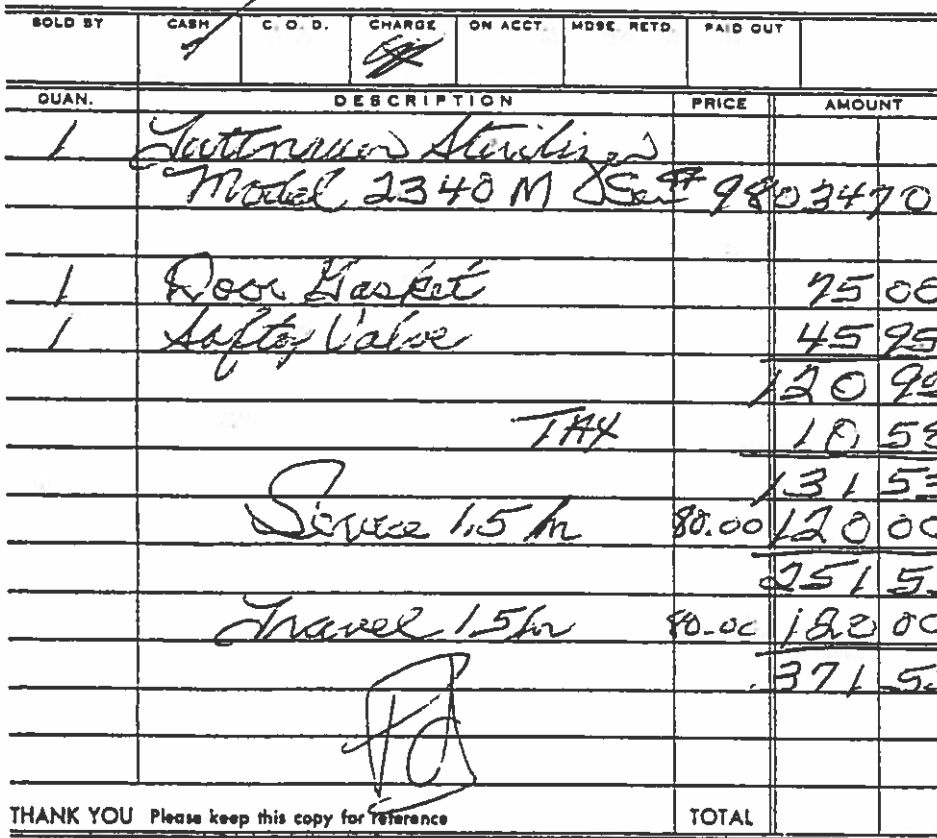 SOLD BY CASH C.O.D. CHARGE ON ACCT. MDSE. RETD. PAID OUT
QUAN. DESCRIPTION PRICE AMOUNT
1 Tuttnauer Sterilizer
Model 2340 M Ser# 9803470
1 Door Gasket 75 00
1 Safty Valve 45 95
120 95
TAX 10 58
131 53
Service 1.5 hr 80.00 120 00
251 5
Travel 1.5 hr 80.00 120 00
371 5
Pd
THANK YOU Please keep this copy for reference TOTAL